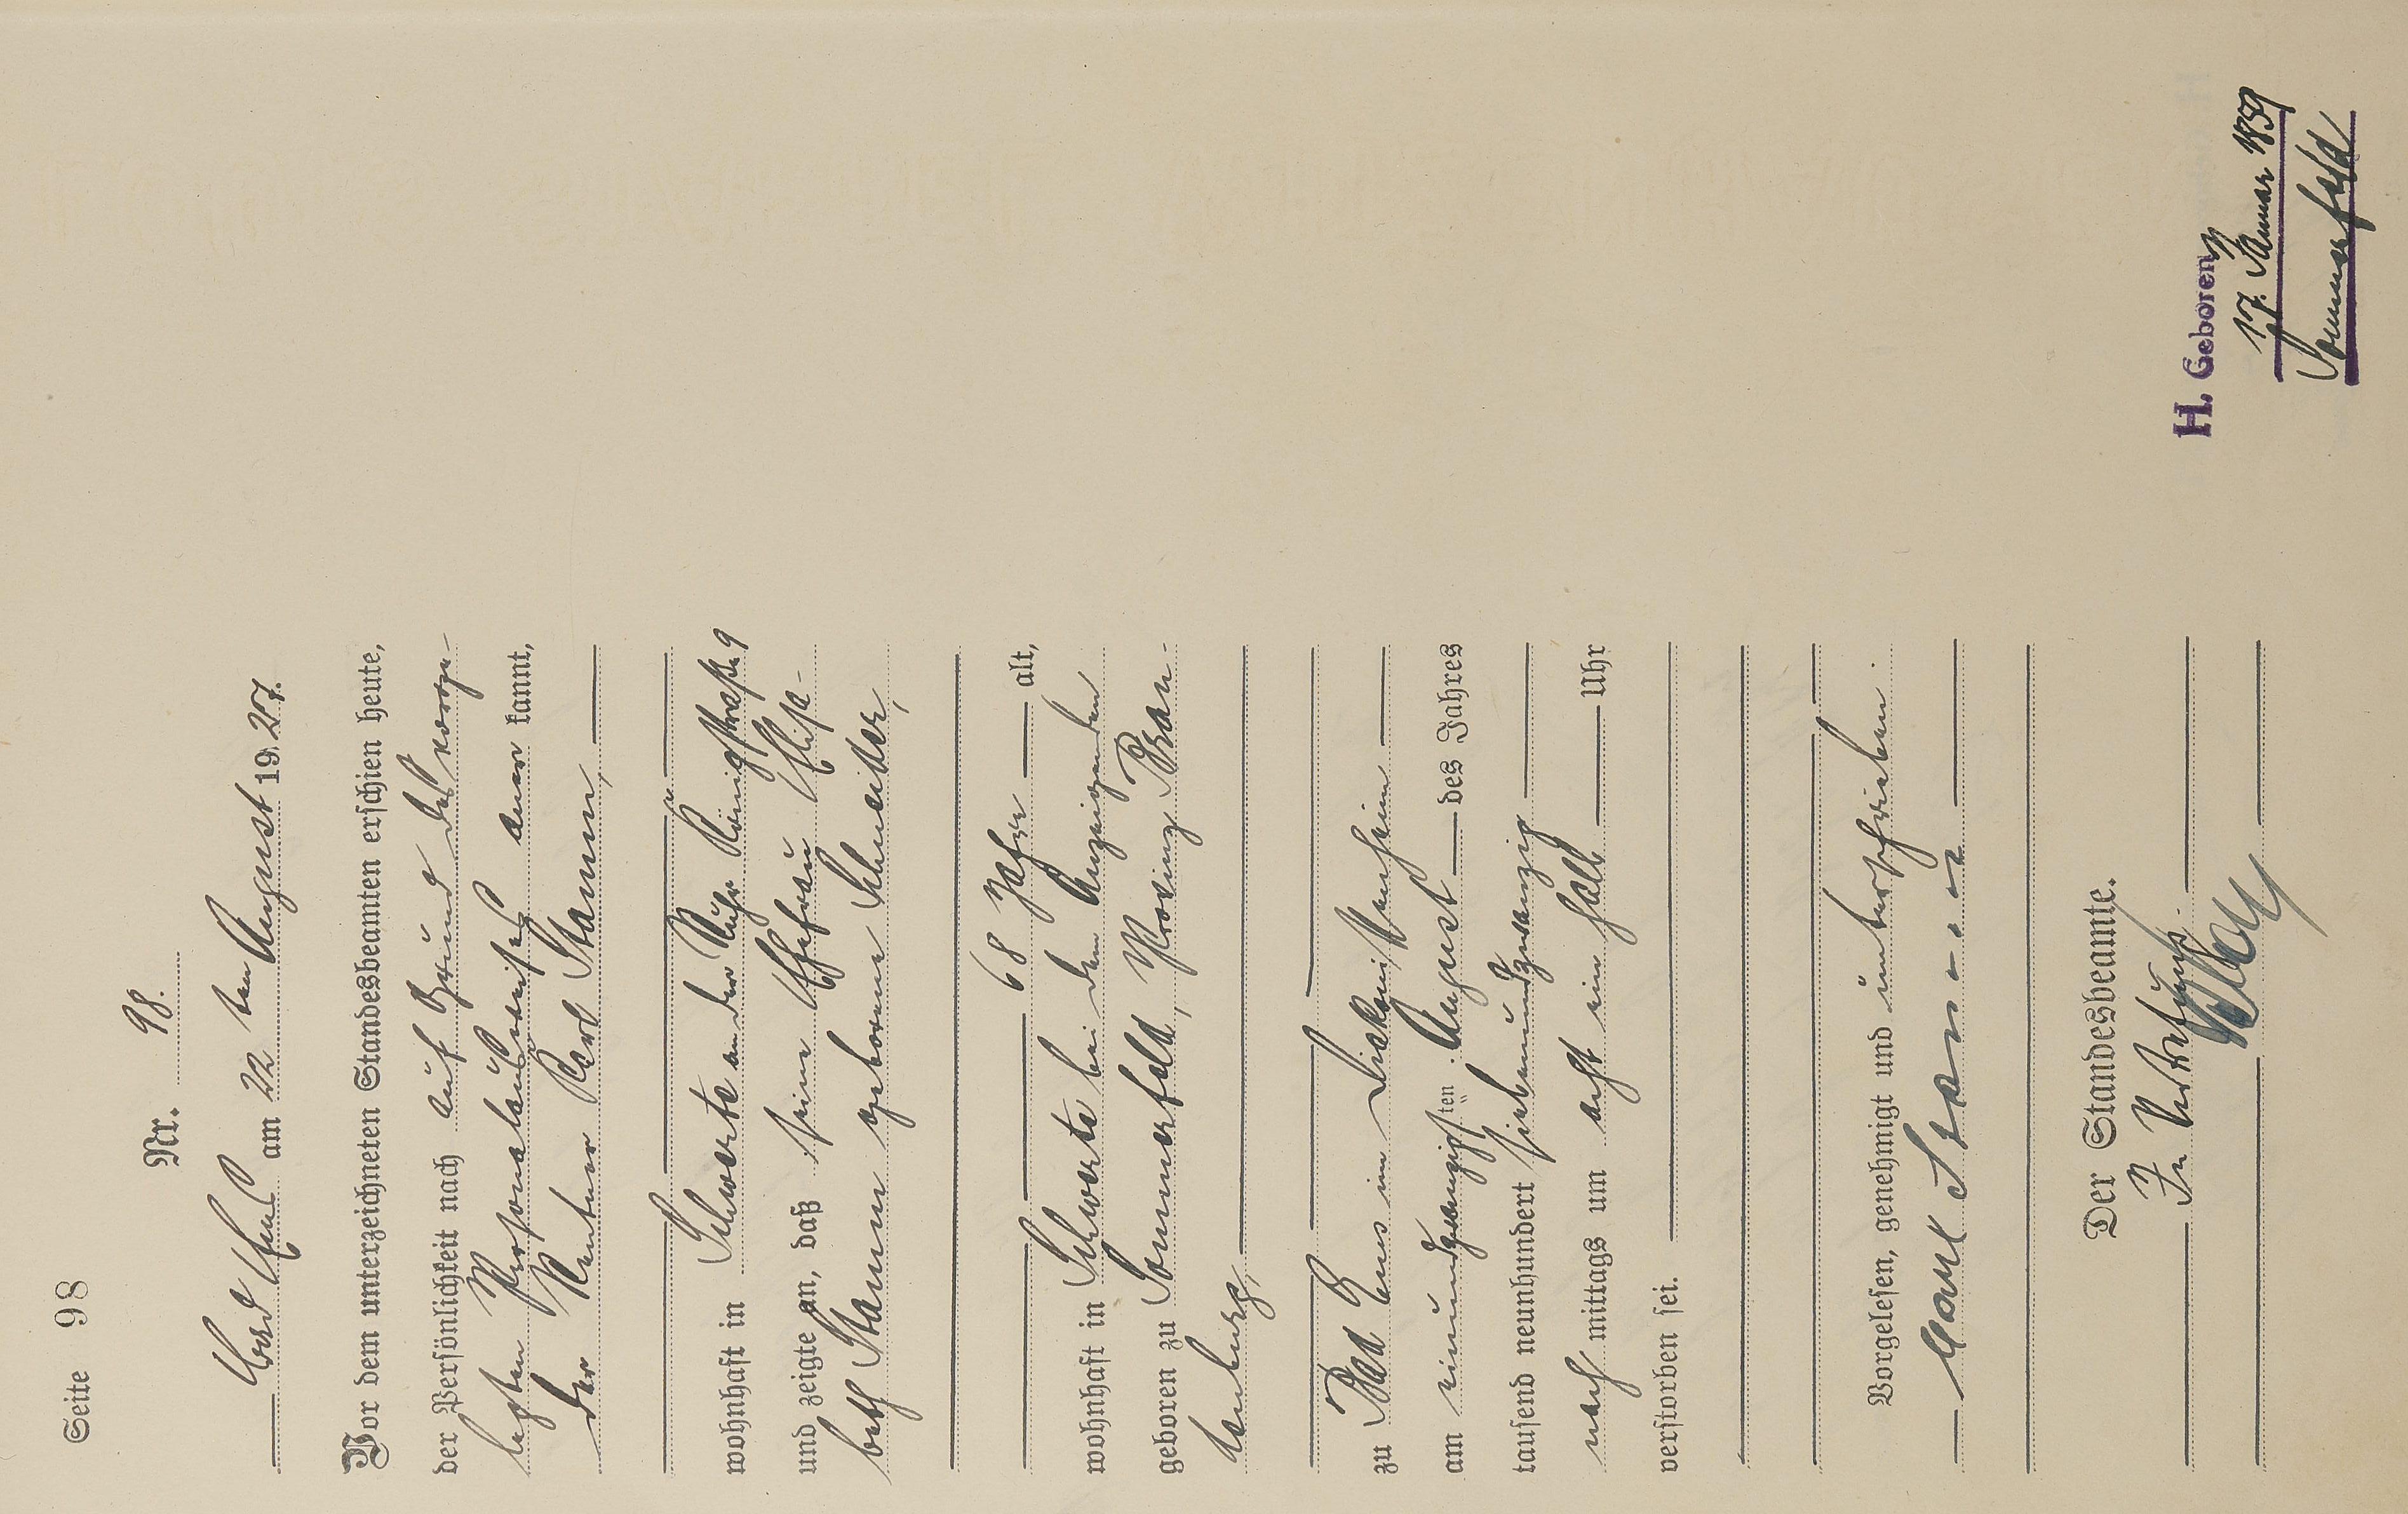 Seite 98
Nr. 98.
Bad Ems am 22 ten August 1927.
Vor dem unterzeichneten Standesbeamten erschien heute,
der Persönlichkeit nach auf Grund des vorge-
legten Personalausweises aner kannt,
der Rentner Karl Stamm,
wohnhaft in Schwerte an der Ruhr Königstraße 9
und zeigte an, daß seine Ehefrau Elisa-
beth Stamm geborene Schneider,
68 Jahre alt,
wohnhaft in Schwerte bei dem Anzeigenden
geboren zu Sommerfeld, Provinz Bran-
denburg,
zu Bad Ems im Diakonissenheim
am einundzwanzigsten August des Jahres
tausend neunhundert siebenundzwanzig
nach mittags um acht ein halb Uhr
verstorben sei.
Vorgelesen, genehmigt und unterschrieben.
Karl Stamm
Der Standesbeamte.
In Vertretung.
H. Geboren
17. Januar 1859
Sommerfeld